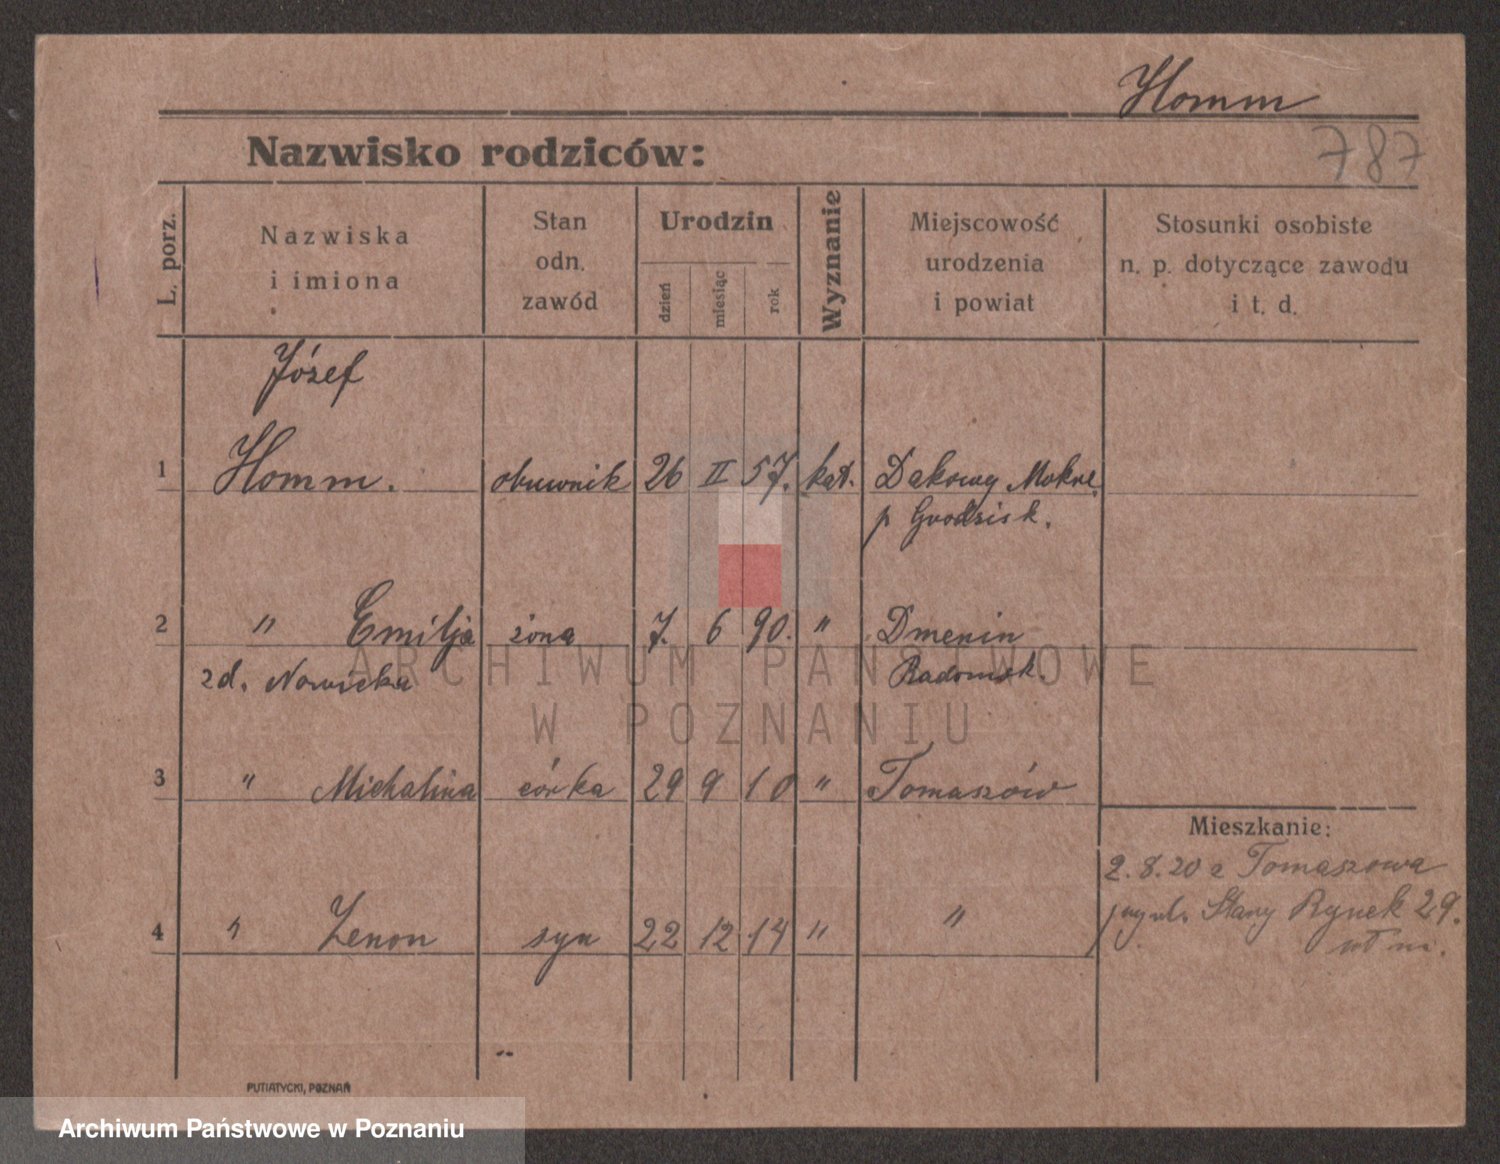 Homm
787
Nazwisko rodziców:
L. porz.
Nazwiska
i imiona
Stan
odn.
zawód
Urodzin
dzień
miesiąc
rok
Wyznanie
Miejscowość
urodzenia
i powiat
Stosunki osobiste
n. p. dotyczące zawodu
i t. d.
Józef
1 Homm. obuwnik 26 II 57. kat. Dakowy Mokre
p Grodzisk.
2 " Emilja żona 7. 6 90. " Dmenin
zd. Nowicka Radomsk.
3 " Michalina córka 29 9 10 " Tomaszów
Mieszkanie:
2.8.20 z Tomaszowa
Stary Rynek 29.
4 " Zenon syn 22 12 14 " "
PUTIATYCKI, POZNAŃ
ARCHIWUM PAŃSTWOWE
W POZNANIU
Archiwum Państwowe w Poznaniu